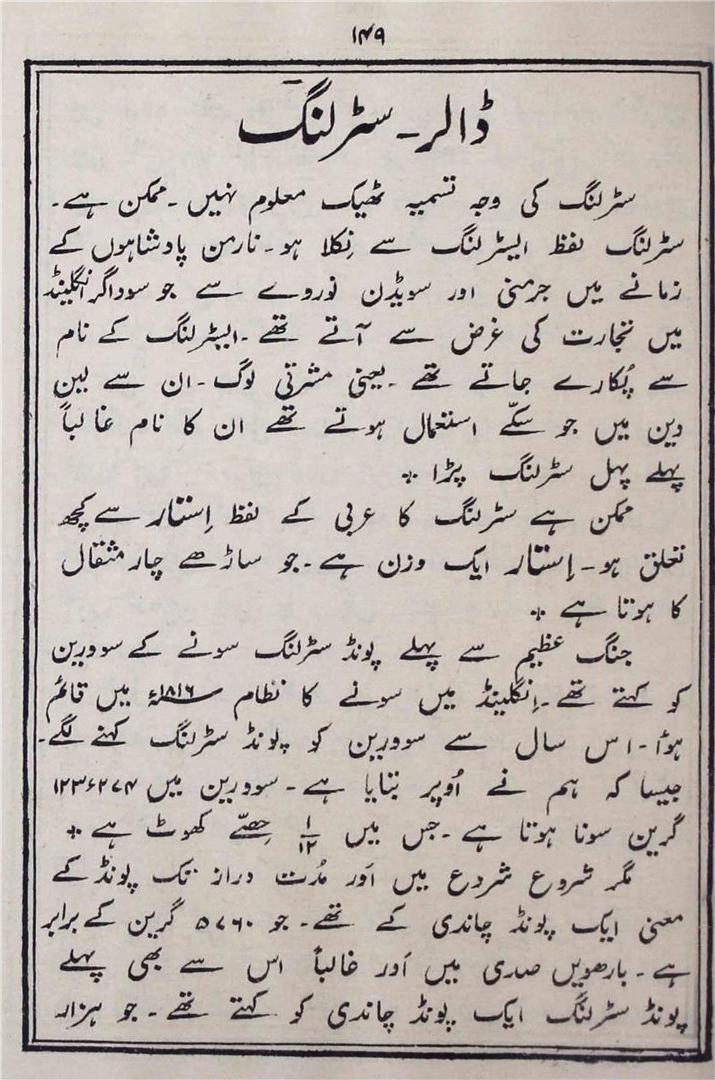 ۱۴۹
ڈالر۔ سٹرلنگ
سٹرلنگ کی وجہ تسمیہ ٹھیک معلوم نہیں۔ ممکن ہے۔
سٹرلنگ لفظ ایسٹرلنگ سے نِکلا ہو۔ نارمن پادشاہوں کے
زمانے میں جرمنی اور سویڈن نوروے سے جو سوداگر انگلینڈ
میں تجارت کی غرض سے آتے تھے۔ ایسٹرلنگ کے نام
سے پُکارے جاتے تھے۔ یعنی مشرقی لوگ۔ ان سے لین
دین میں جو سکّے استعمال ہوتے تھے ان کا نام غالباً
پہلے پہل سٹرلنگ پڑا ٭
ممکن ہے سٹرلنگ کا عربی کے لفظ اِستار سے کچھ
تعلق ہو۔ اِستار ایک وزن ہے۔ جو ساڑھے چار مثقال
کا ہوتا ہے ٭
جنگ عظیم سے پہلے پونڈ سٹرلنگ سونے کے سوورین
کو کہتے تھے۔ اِنگلینڈ میں سونے کا نظام ۱۸۱۶ء میں قائم
ہوٗا۔ اس سال سے سوورین کو پونڈ سٹرلنگ کہنے لگے۔
جیسا کہ ہم نے اُوپر بتایا ہے۔ سوورین میں ۱۲۳ء۲۷۴
گرین سونا ہوتا ہے۔ جس میں ۱/۱۲ حِصّے کھوٹ ہے ٭
مگر شروع شروع میں اَور مُدت دراز تک پونڈ کے
معنی ایک پونڈ چاندی کے تھے۔ جو ۵۷۶۰ گرین کے برابر
ہے۔ بارھویں صدی میں اَور غالباً اس سے بھی پہلے
پونڈ سٹرلنگ ایک پونڈ چاندی کو کہتے تھے۔ جو ہزار